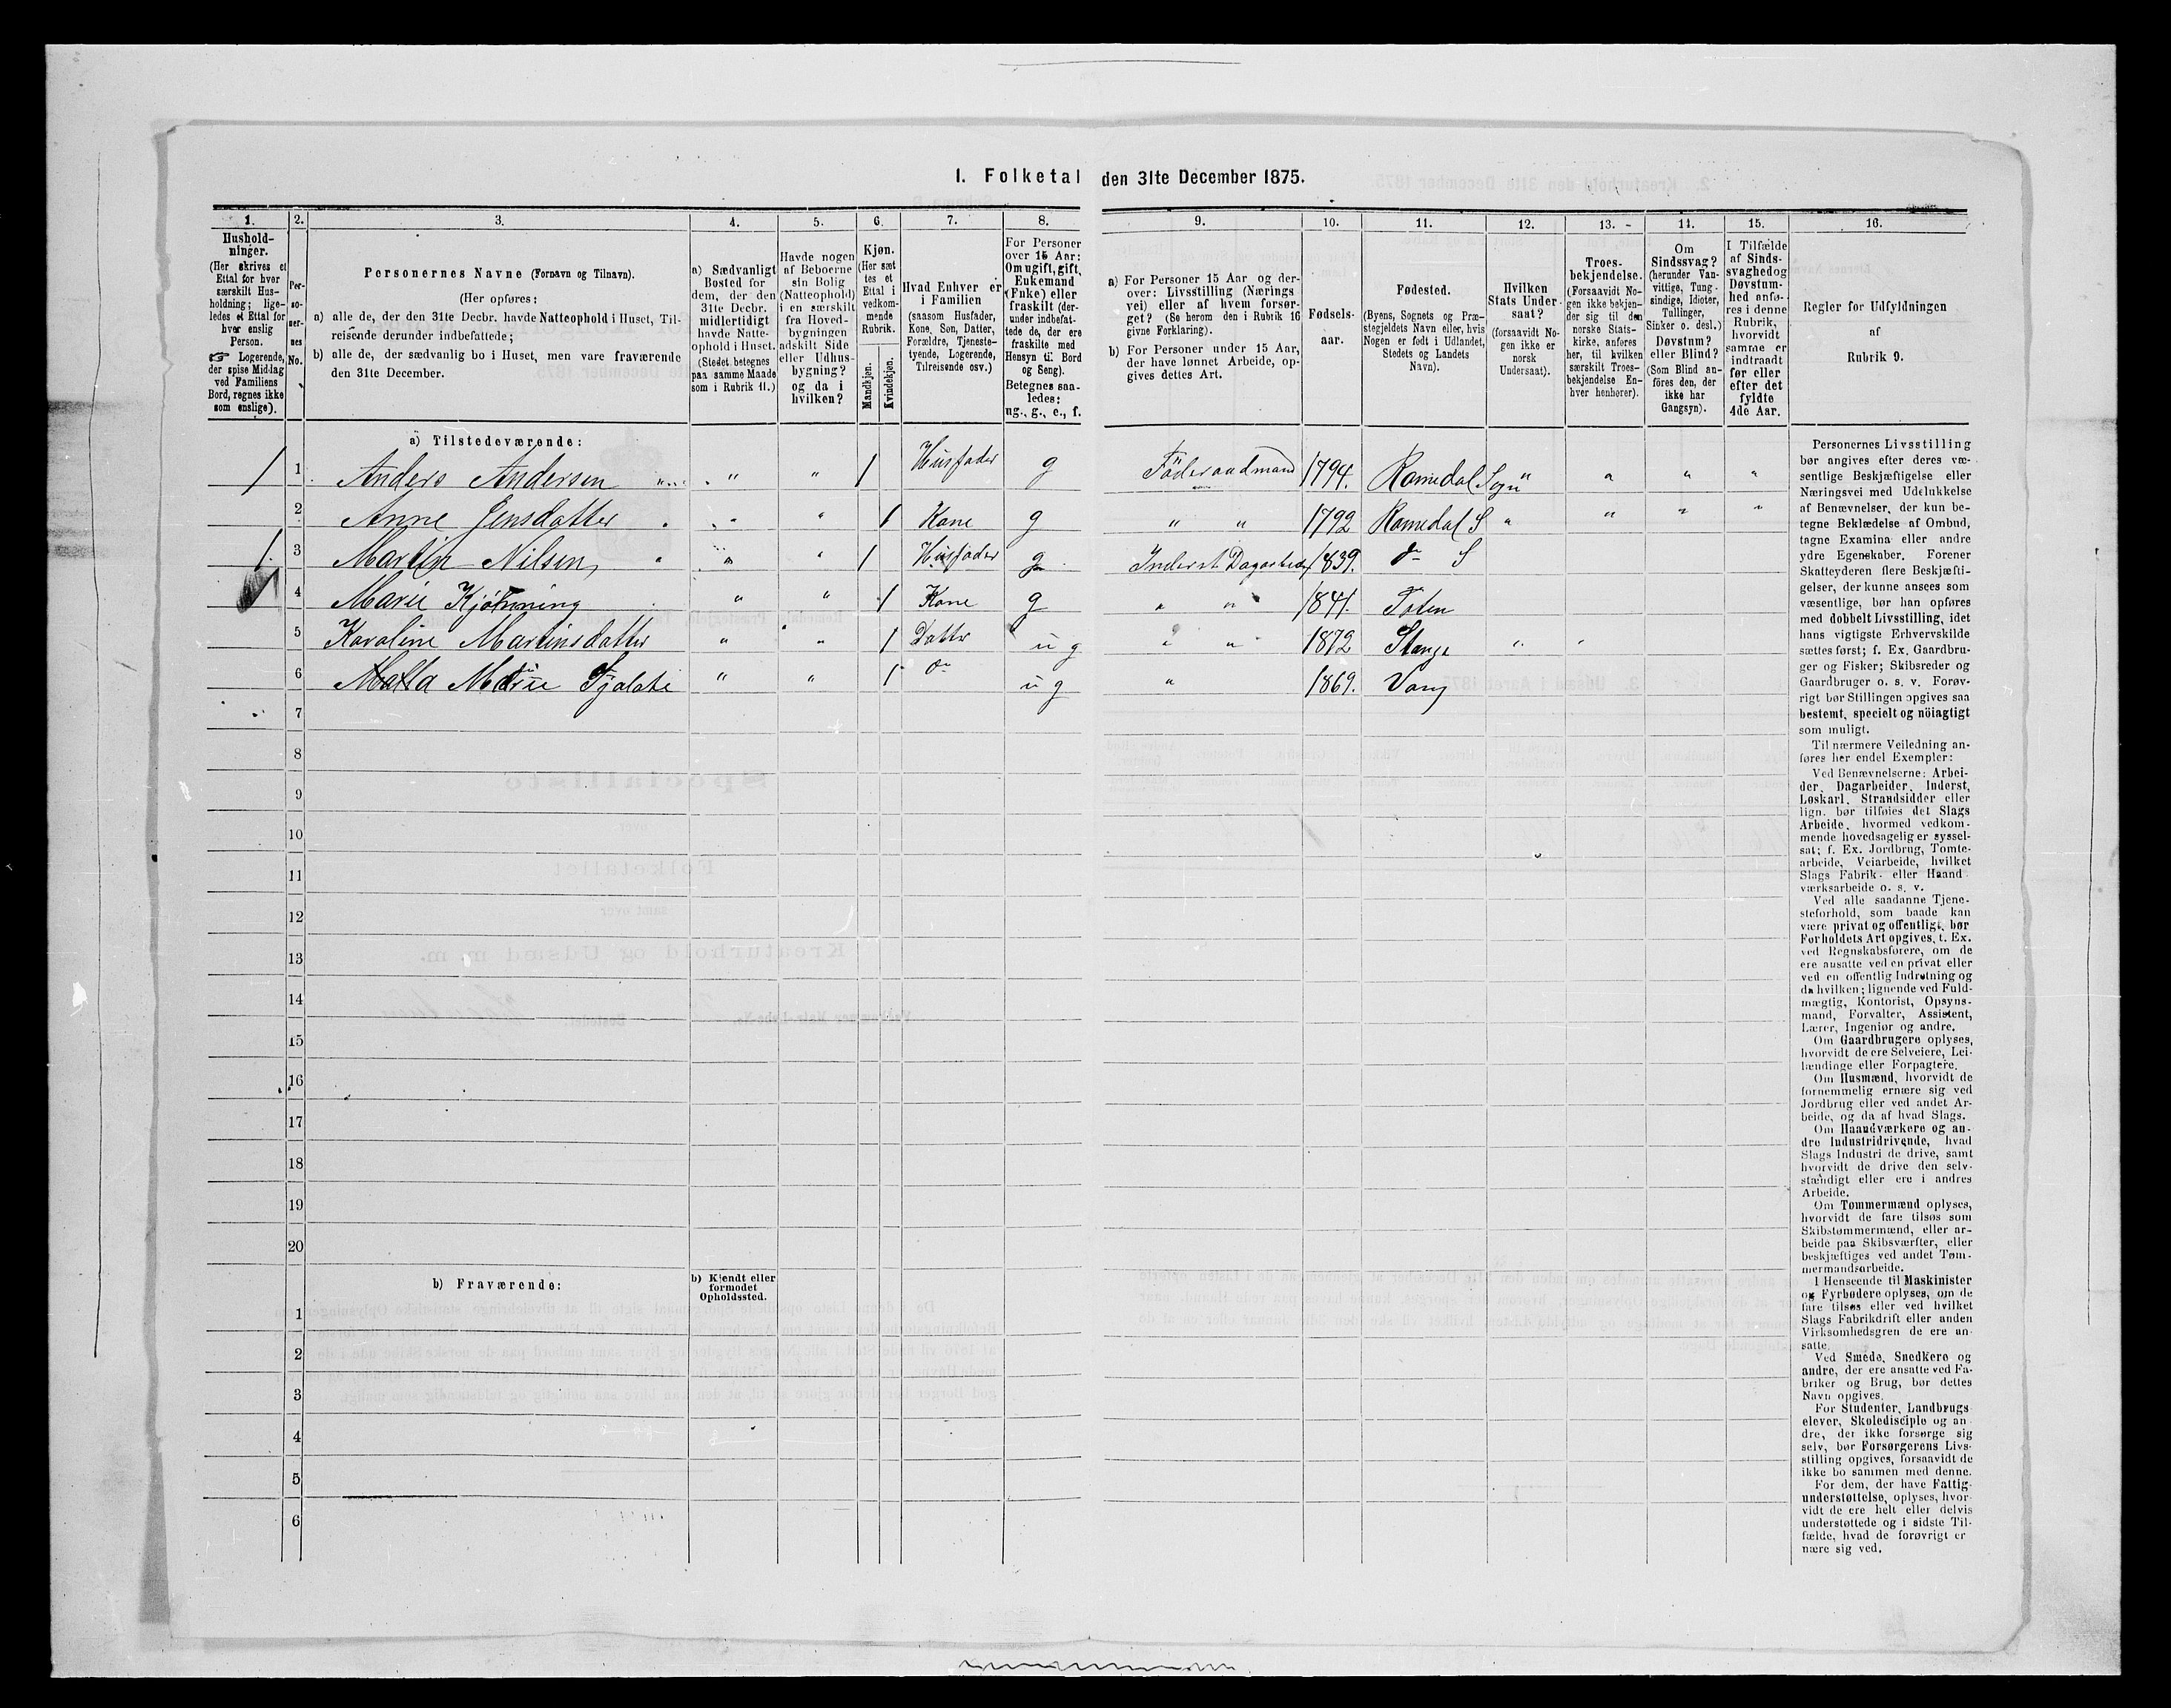 1. Folketal den 31te December 1875.
1. 2. 3. 4. 5. 6. 7. 8. 9. 10. 11. 12. 13. 14. 15. 16.
Hushold-
ninger.
(Her skrives et
Ettal for hver
særskilt Hus-
holdning; lige-
ledes et Ettal for
hver enslig
Person.
☞ Logerende,
der spise Middag
ved Familiens
Bord, regnes ikke
som enslige).
Per-
so-
ner-
nes
No.
Personernes Navne (Fornavn og Tilnavn).
(Her opføres:
a) alle de, der den 31te Decbr. havde Natteophold i Huset, Til-
reisende derunder indbefattede;
b) alle de, der sædvanlig bo i Huset, men vare fraværende
den 31te December.
a) Sædvanligt
Bosted for
dem, der den
31te Decbr.
midlertidigt
havde Natte-
ophold i Huset.
(Stedet betegnes
paa samme Maade
som i Rubrik 11.)
Havde nogen
af Beboerne
sin Bolig
(Natteophold)
i en særskilt
fra Hoved-
bygningen
adskilt Side
eller Udhus-
bygning?
og da i
hvilken?
Kjøn.
(Her sæt
tes et
Ettal i
vedkom-
mende
Rubrik.
Mandkjøn.
Kvindekjøn.
Hvad Enhver er
i Familien
(saasom Husfader,
Kone, Søn, Datter,
Forældre, Tjeneste-
tyende, Logerende,
Tilreisende osv.)
For Personer
over 15 Aar:
Om ugift, gift,
Enkemand
(Enke) eller
fraskilt (der-
under indbefat-
tede de, der ere
fraskilte med
Hensyn til Bord
og Seng).
Betegnes saa-
ledes:
ug., g., e., f.
a) For Personer 15 Aar og der-
over: Livsstilling (Nærings
vei) eller af hvem forsør-
get? (Se herom den i Rubrik 16
givne Forklaring).
b) For Personer under 15 Aar,
der have lønnet Arbeide, op-
gives dettes Art.
Fødsels-
aar.
Fødested.
(Byens, Sognets og Præ-
stegjeldets Navn eller, hvis
Nogen er født i Udlandet,
Stedets og Landets
Navn).
Hvilken
Stats Under-
saat?
(forsaavidt No-
gen ikke er
norsk
Undersaat).
Troes-
bekjendelse.
(Forsaavidt No-
gen ikke bekjen-
der sig til den
norske Stats-
kirke, anføres
her, til hvilken
særskilt Troes-
bekjendelse En-
hver henhører).
Om
Sindssvag?
(herunder Van-
vittige, Tung-
sindige, Idioter,
Tullinger,
Sinker o. desl.)
Døvstum?
eller Blind?
(Som Blind an-
föres den, der
ikke har
Gangsyn).
I Tilfælde
af Sinds-
svaghed og
Døvstum-
hed anfø-
res i denne
Rubrik,
hvorvidt
samme er
indtraadt
før eller
efter det
fyldte
4de Aar.
Regler for Udfyldningen
af
Rubrik 9.
a) Tilstedeværende:
1 1 Anders Andersen " " 1 Husfader g Föderaadmand 1794. Romedal Sogn " " " "
2 Anne Jensdatter " " 1 Kone g " " 1792 Romedal S " " " "
1 3 Martin Nilsen " " 1 Husfader g Inderst Dagarbeder 1839. do S
4 Marie Kjörning " " 1 Kone g " " 1841. Toten
5 Karoline Martinsdatter " " 1 Datter u g " " 1872 Stange " "
6 Marie " " 1 do u g " 1869. Vang
7
8
9
10
11
12
13
14
15
16
17
18
19
20
b) Fraværende:
b) Kjendt eller
formodet
Opholdssted.
1
2
3
4
5
6
Personernes Livsstilling
bør angives efter deres væ-
sentlige Beskjæftigelse eller
Næringsvei med Udelukkelse
af Benævnelser, der kun be-
tegne Beklædelse af Ombud,
tagne Examina eller andre
ydre Egenskaber. Forener
Skatteyderen flere Beskjæfti-
gelser, der kunne ansees som
væsentlige, bør han opføres
med dobbelt Livsstilling, idet
hans vigtigste Erhvervskilde
sættes først; f. Ex. Gaardbru-
ger og Fisker; Skibsreder og
Gaardbruger o. s. v. Forøv-
rigt bør Stillingen opgives saa
bestemt, specielt og nöiagtigt
som muligt.
Til nærmere Veiledning an-
føres her endel Exempler:
Ved Benævnelserne: Arbei-
der, Dagarbeider, Inderst,
Løskarl, Strandsidder eller
lign. bør tilføies det Slags
Arbeide, hvormed vedkom-
mende hovedsagelig er syssel-
sat; f. Ex. Jordbrug, Tomte-
arbeide, Veiarbeide, hvilket
Slags Fabrik- eller Haand-
værksarbeide o. s. v.
Ved alle saadanne Tjene-
steforhold, som baade kan
være privat og offentligt, bør
Forholdets Art opgives, t. Ex.
ved Regnskabsførere, om de
ere ansatte ved en privat eller
ved en offentlig Indretning og
da hvilken; lignende ved Fuld-
mægtig, Kontorist, Opsyns-
mand, Forvalter, Assistent,
Lærer, Ingeniør og andre.
Om Gaardbrugere oplyses,
hvorvidt de ere Selveiere, Lei-
lændinge eller Forpagtere.
Om Husmænd, hvorvidt de
fornemmelig ernære sig ved
Jordbrug eller ved andet Ar-
beide, og da af hvad Slags.
Om Haandværkere og an-
dre Industridrivende, hvad
Slags Industri de drive, samt
hvorvidt de drive den selv-
stændigt eller ere i andres
Arbeide.
Om Tømmermænd oplyses,
hvorvidt de fare tilsøs som
Skibstømmermænd, eller ar-
beide paa Skibsværfter, eller
beskjæftiges ved andet Tøm-
mermandsarbeide.
I Henseende til Maskinister
og Fyrbødere oplyses, om de
fare tilsøs eller ved hvilket
Slags Fabrikdrift eller anden
Virksomhedsgren de ere an-
satte.
Ved Smede, Snedkere og
andre, der ere ansatte ved Fa-
briker og Brug, bør dettes
Navn opgives.
For Studenter, Landbrugs-
elever, Skoledisciple og an-
dre, der ikke forsørge sig
selv, bør Forsørgerens Livs-
stilling opgives, forsaavidt de
ikke bo sammen med denne.
For dem, der have Fattig-
understøttelse, oplyses, hvor-
vidt de ere helt eller delvis
understøttede og i sidste Til-
fælde, hvad de forøvrigt er
nære sig ved.